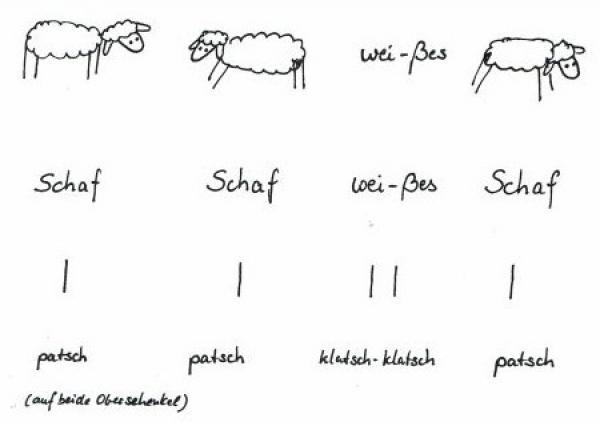 wei-ßes
Schaf Schaf wei-ßes Schaf
patsch patsch klatsch-klatsch patsch
(auf beide Oberschenkel)